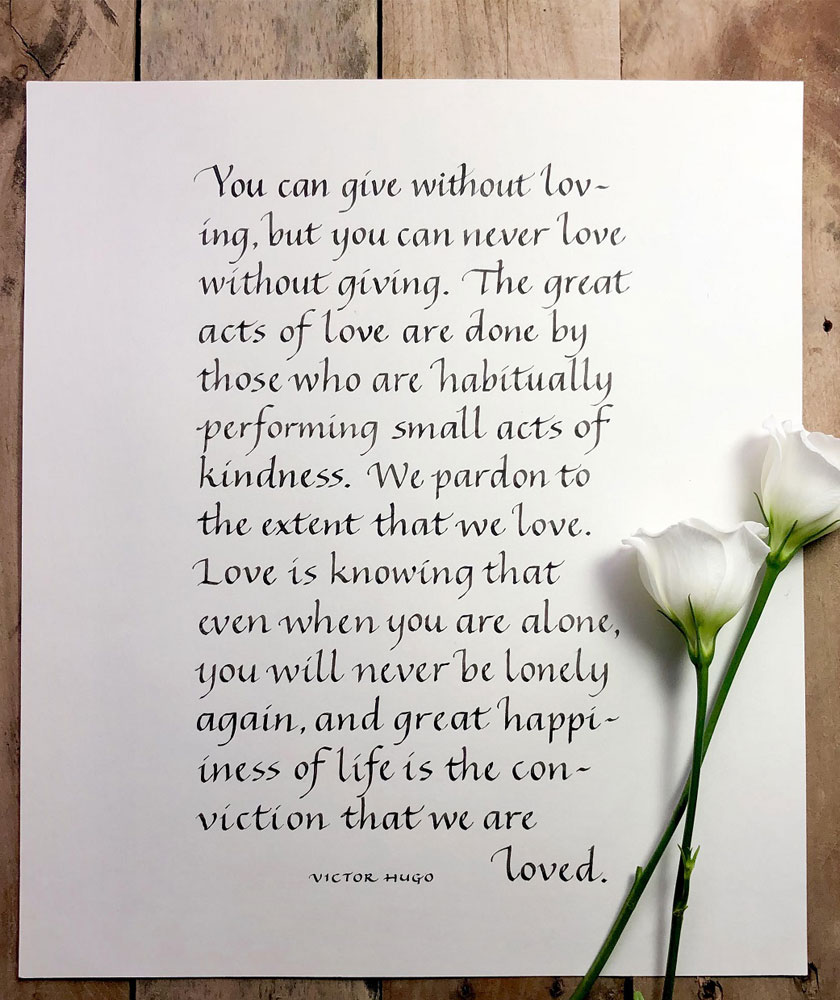 You can give without lov-
ing, but you can never love
without giving. The great
acts of love are done by
those who are habitually
performing small acts of
kindness. We pardon to
the extent that we love.
Love is knowing that
even when you are alone,
you will never be lonely
again, and great happi-
iness of life is the con-
viction that we are
loved.
VICTOR HUGO